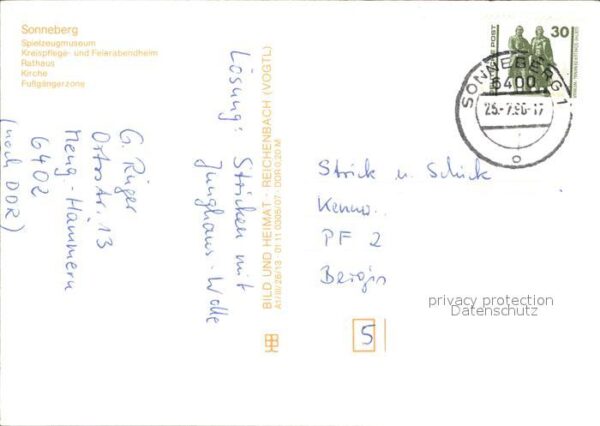 Sonneberg
Spielzeugmuseum
Kreispflege- und Feierabendheim
Rathaus
Kirche
Fußgängerzone
G. Rüger
13
6402
(noch DDR)
Lösung: Stricken mit
Junghans-Wolle
BILD UND HEIMAT · REICHENBACH (VOGTL)
A1/III/26/13 · 01 11 0305/07 · DDR 0,20 M
30
SONNEBERG 1
6400
25.-7.90-17
Strick u. Schick
PF 2
privacy protection
Datenschutz
5